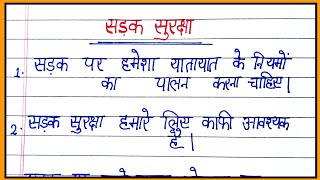 सड़क सुरक्षा
1. सड़क पर हमेशा यातायात के नियमों
का पालन करना चाहिए।
2. सड़क सुरक्षा हमारे लिए काफी आवश्यक
है।